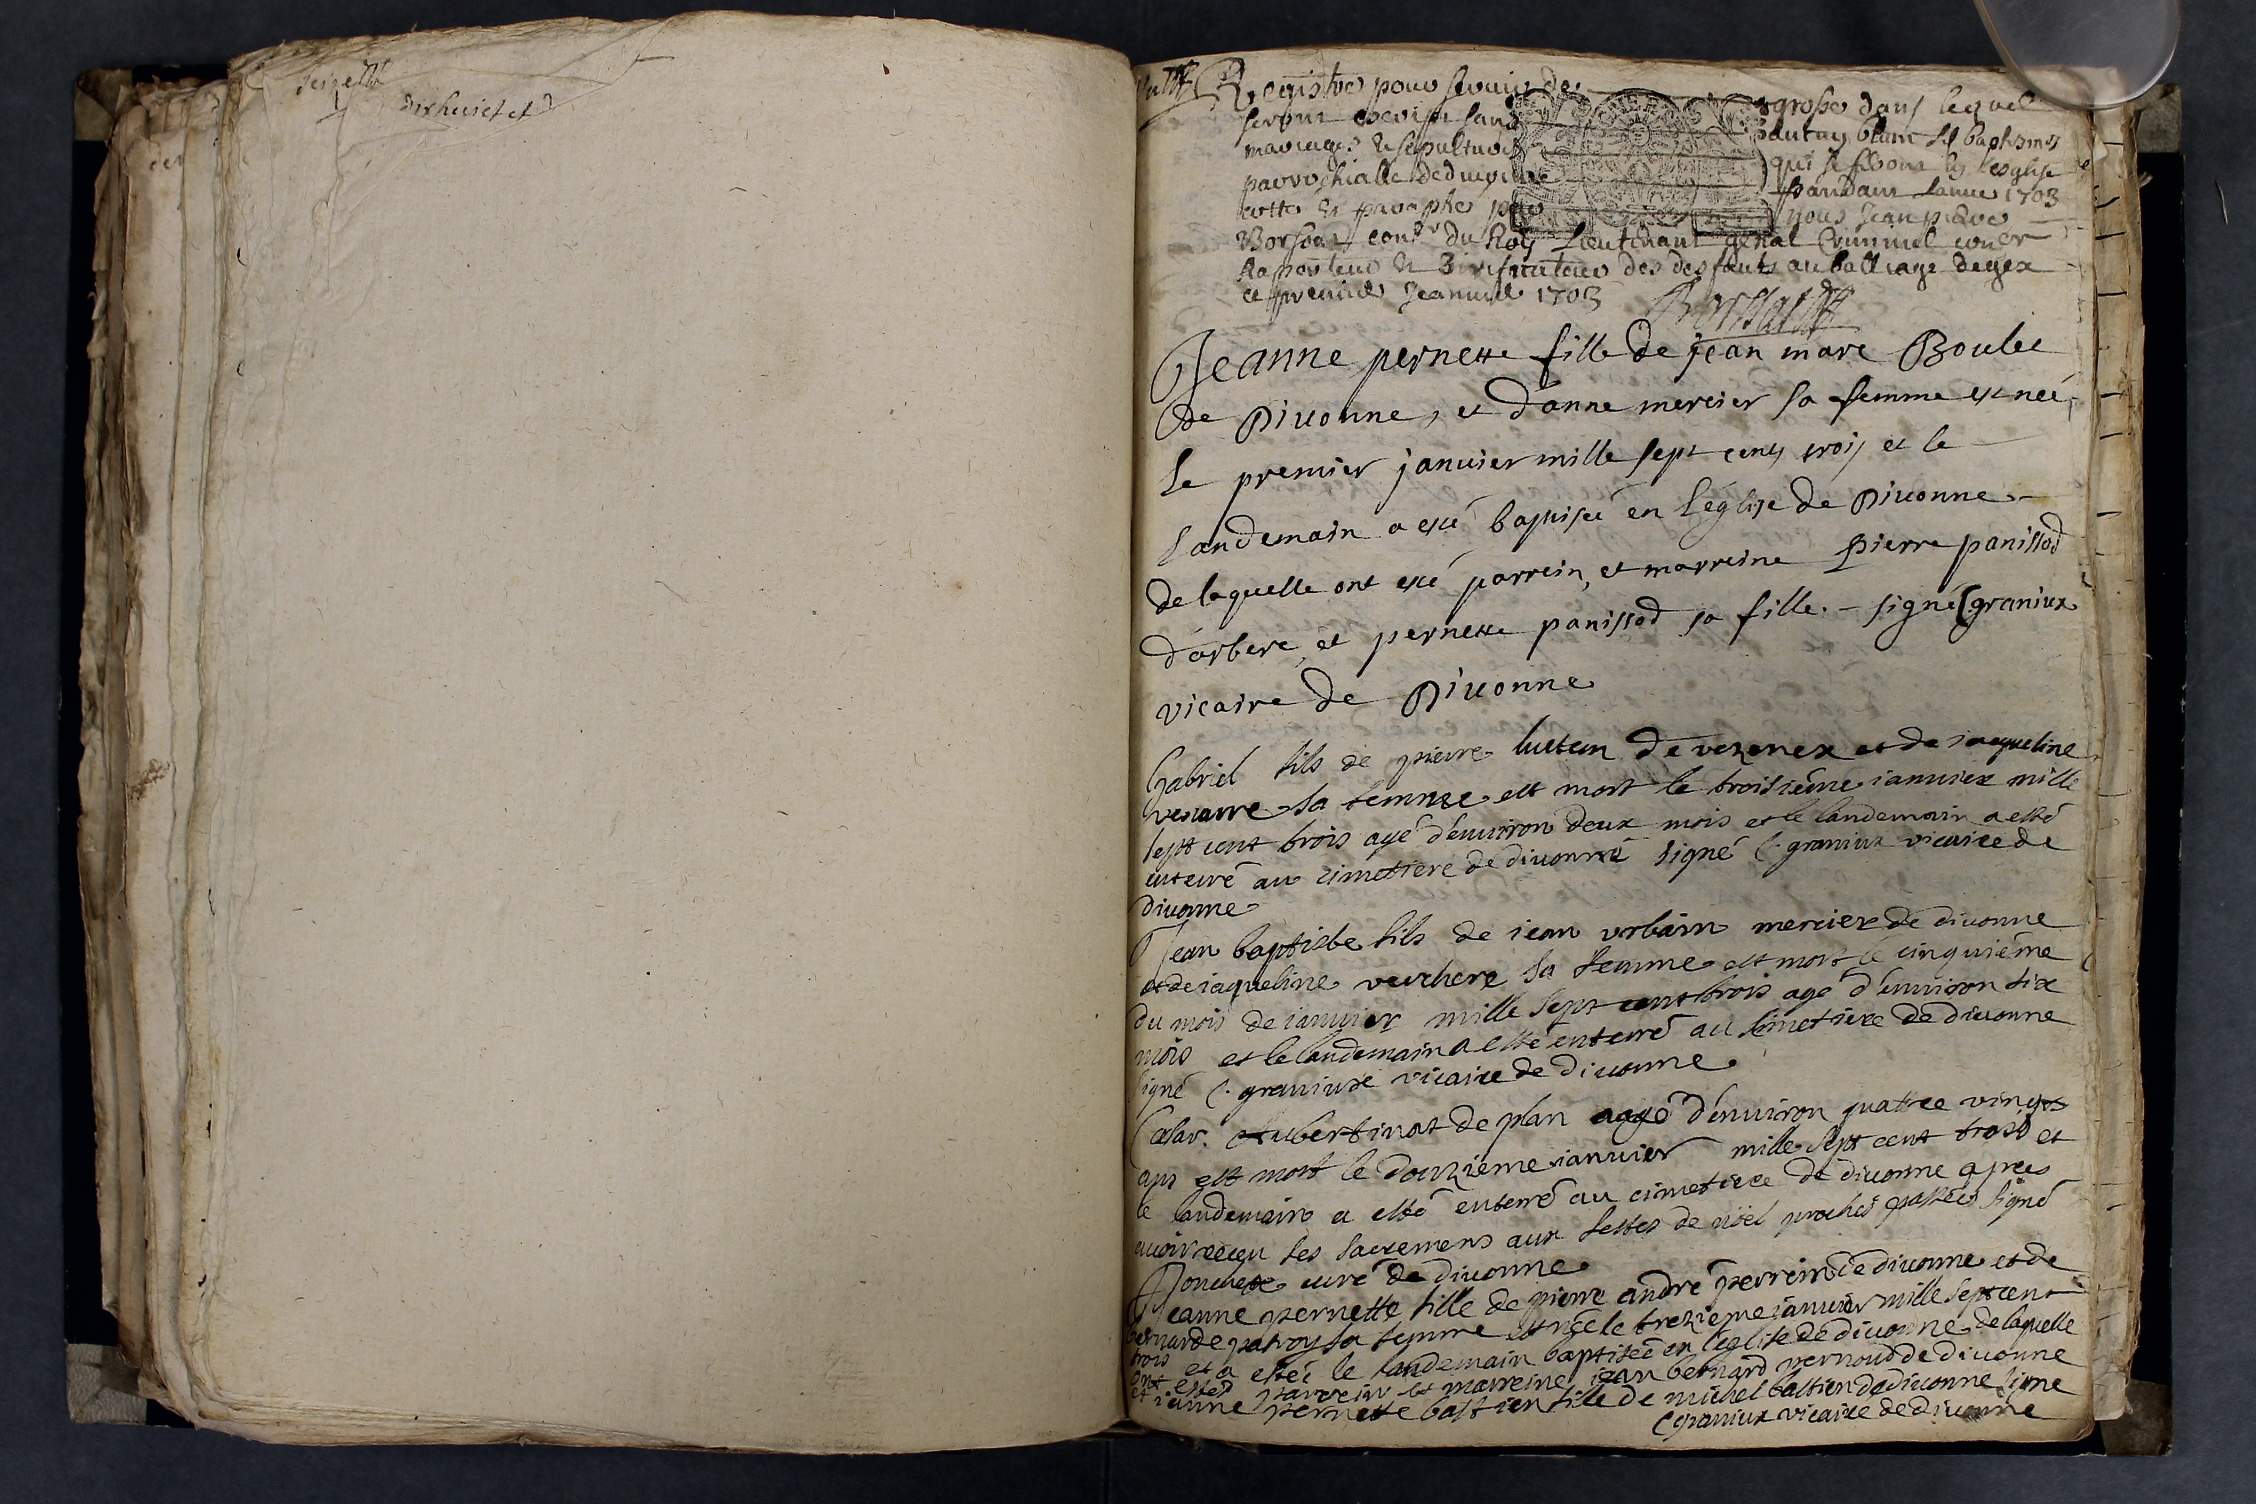 dixhuict et
Registre pour servir de grosse dans lequel
seront escript sans aucung blanc les baptismes
mariages & sepultures qui se feront en l'esglise
parrochialle de divonne pandant l'annee 1703
cotté & paraphé par nous Jean pierre
Borssat cons.r du Roy Lieutenant gnãl Criminel con.er
Raporteur & des deffauts au balliage de gex
ce premier Jeanvier 1703
Borssat
Jeanne pernette fille de jean marc Boulee
de Diuonne, et d'anne mercier sa femme est neé,
le premier januier mille sept cents trois et le
landemain a esté baptiseé en l'église de Diuonne
de laquelle ont esté parrein, et marreine pierre panissod
d'arbere, et pernette panissod sa fille. - signé C graniux
vicaire de Diuonne
Gabriel fils de pierre de vezenex et de iaqueline
sa femme est mort le troisiéme ianuier mille
sept cent trois agé d'enuiron deux mois et le landemain a esté
enterré au cimetiere de diuonne signé C. graniux vicaire de
diuonne
Jean baptiste fils de iean vrbain mercier de diuonne
et de iaqueline verchere sa femme est mort le cinquiéme
du mois de ianuier mille sept cent trois agé d'enuiron six
mois et le landemain a esté enterré au simetiere de diuonne
signé C. graniux vicaire de diuonne
de plan aagé d'enuiron quattre vingts
ans est mort le douzieme ianuier mille sept cent trois et
le landemain a esté enterré au cimetiere de diuonne apres
auoir receu les sacremens aux festes de nöel proches passées signé
curé de diuonne
Jeanne pernette fille de pierre andré perrein de diuonne et de
bernarde patroy sa femme est née le trezieme ianuier mille sept cent
trois et a estée le landemain baptisée en l'eglise de diuonne de laquelle
ont estés parrein et marreine iean bernard pernoud de diuonne
et ianne pernette bastien fille de michel bastien de diuonne signé
C graniux vicaire de diuonne